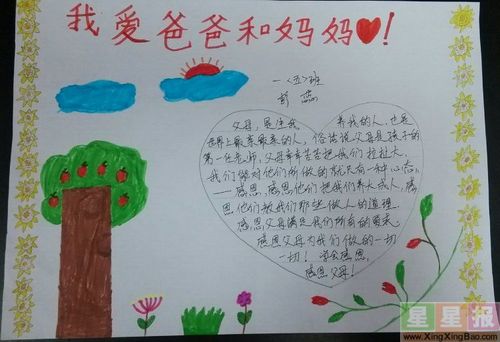 我爱爸爸和妈妈❤!
一〈五〉班
彭蕊
父母,是生我 养我的人,也是
世界上最亲最亲的人,俗话说父母是孩子的
第一任老师,父母辛辛苦苦把我们拉扯大,
我们能对他们所做的就只有一种心态,
——感恩,感恩他们把我们养大成人,感
恩他们教我们那些做人的道理,
感恩父母满足我们所有的要求,
感恩父母为我们做的一切
一切!学会感恩,
感恩父母!
星星报
www.XingXingBao.com